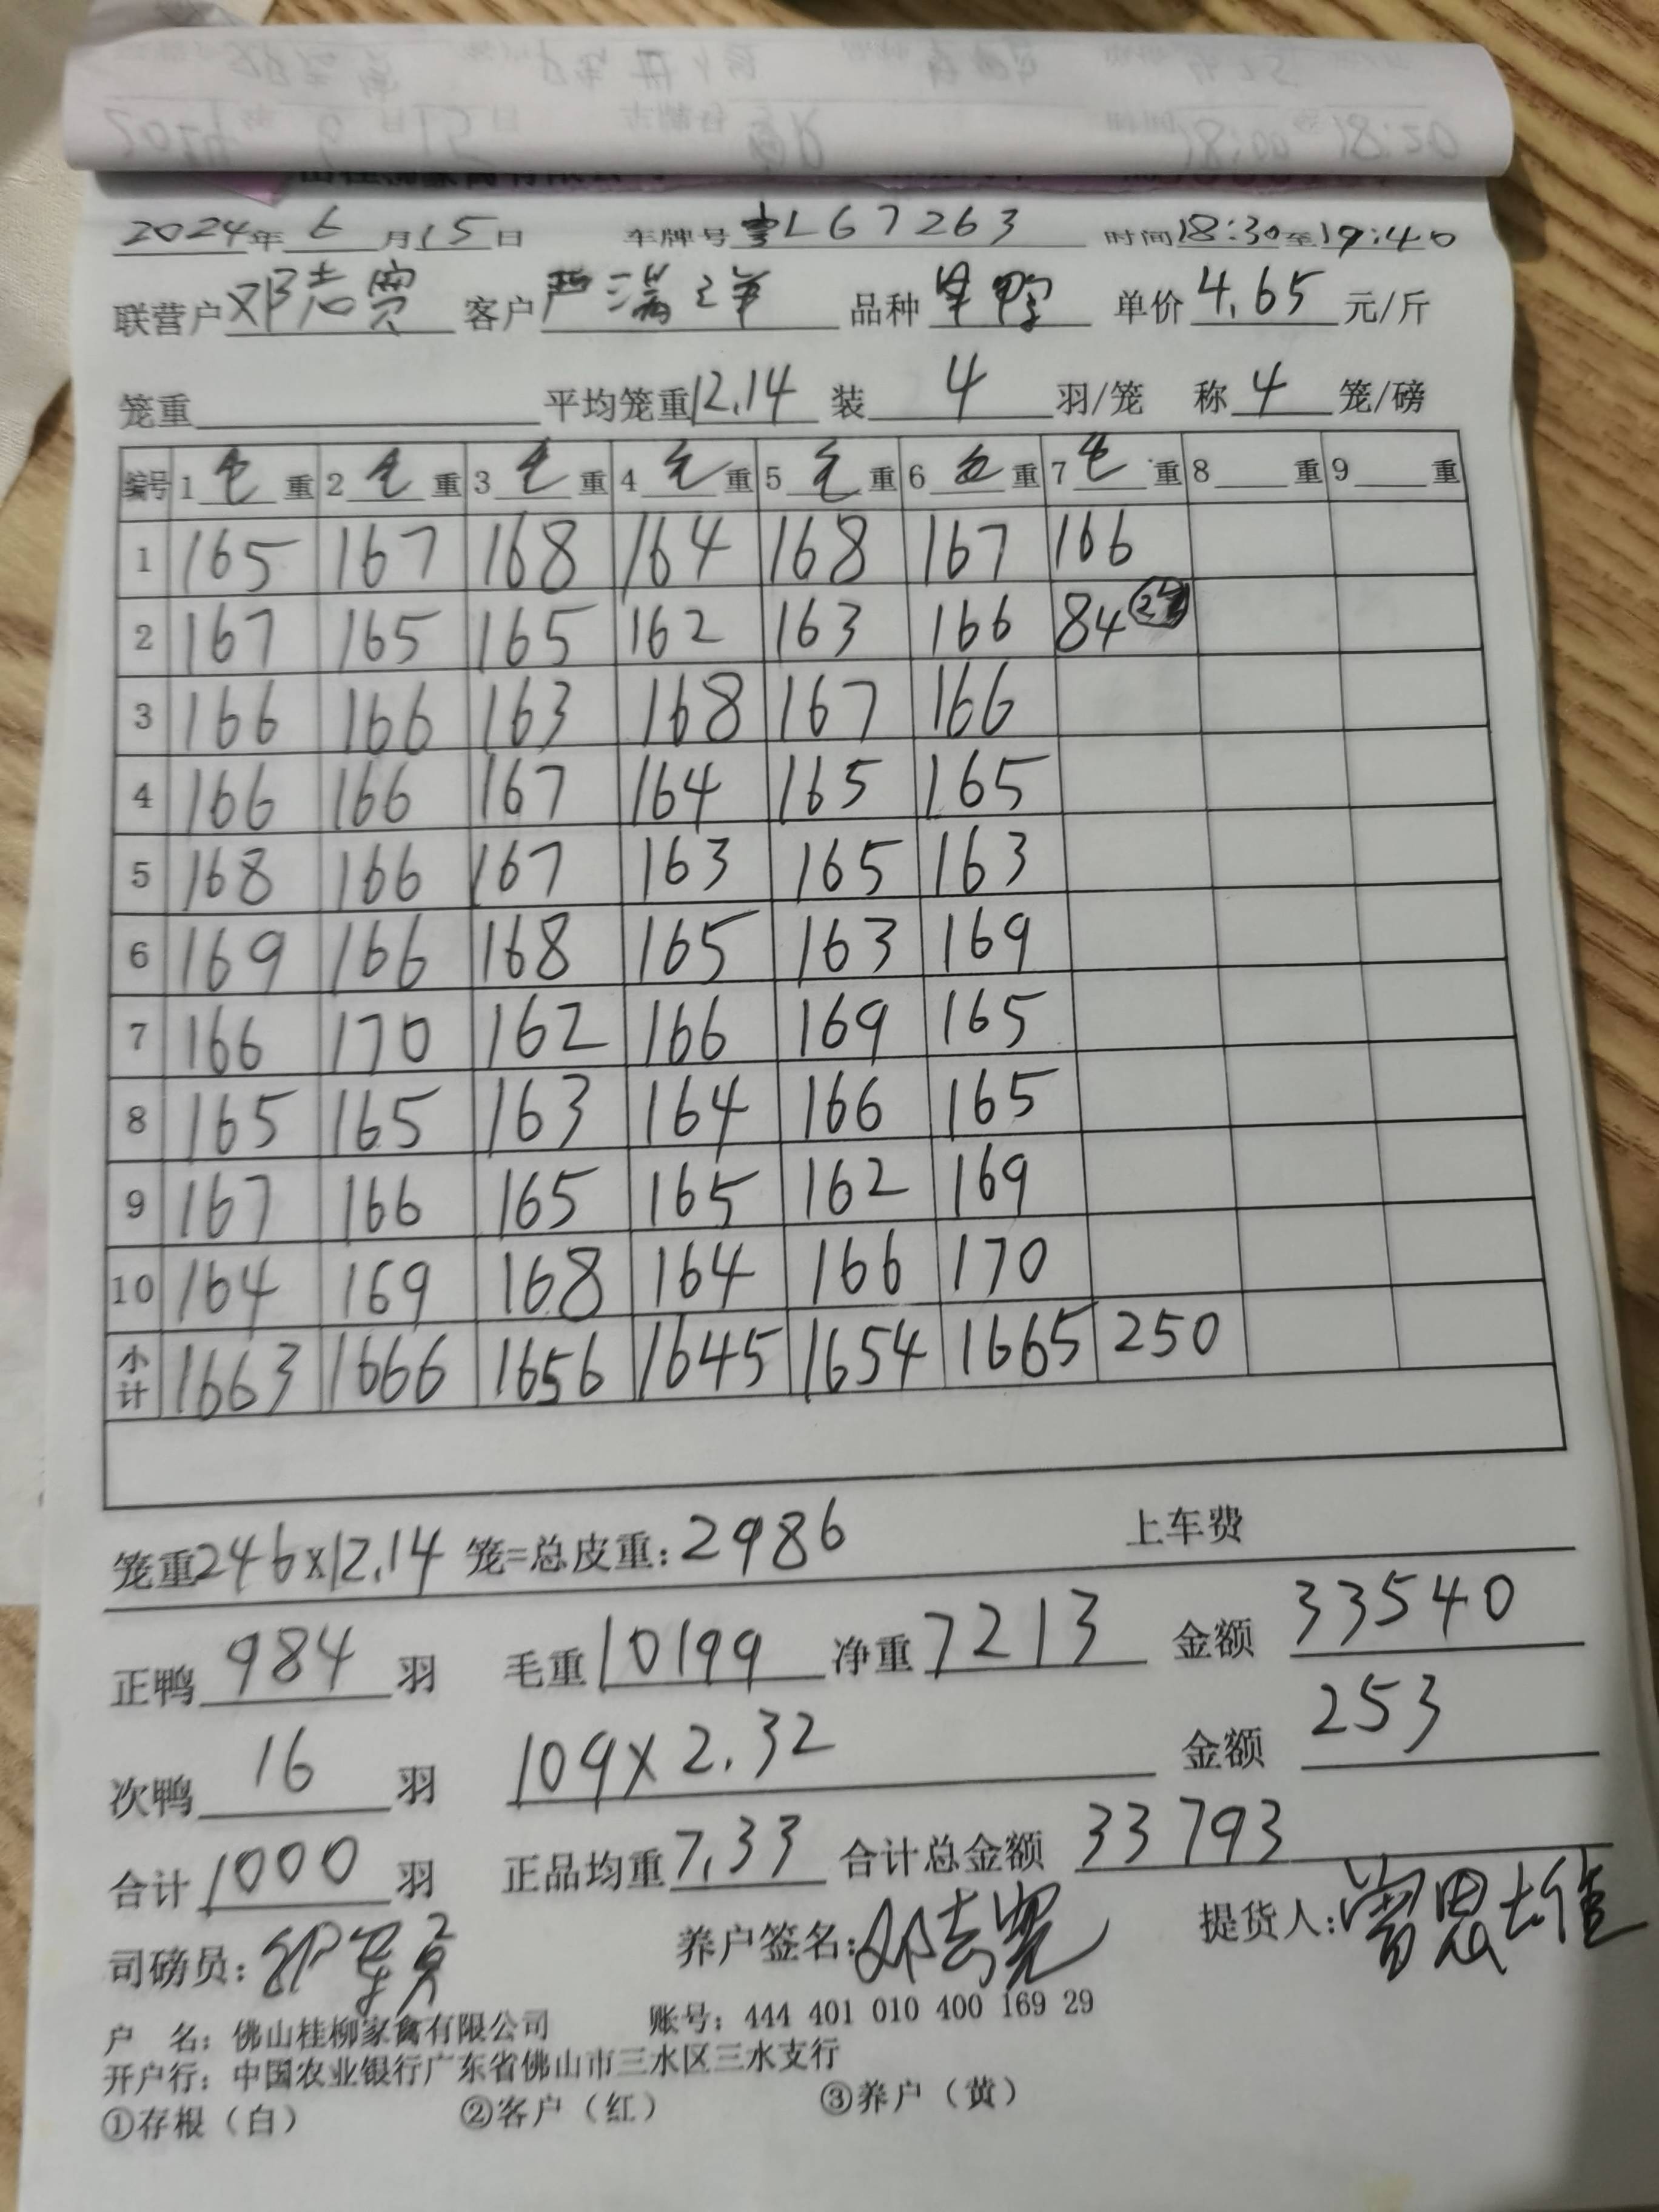 2024年 6 月 15 日 车牌号 粤L67263 时间 18:30 至 19:40
联营户 邓志宽 客户 严满洋 品种 单价 4.65 元/斤
笼重 平均笼重 12.14 装 4 羽/笼 称 4 笼/磅
编号 1 毛 重 2 毛 重 3 毛 重 4 毛 重 5 毛 重 6 毛 重 7 毛 重 8 重 9 重
1 165 167 168 164 168 167 166
2 167 165 165 162 163 166 84
3 166 166 163 168 167 166
4 166 166 167 164 165 165
5 168 166 167 163 165 163
6 169 166 168 165 163 169
7 166 170 162 166 169 165
8 165 165 163 164 166 165
9 167 166 165 165 162 169
10 164 169 168 164 166 170
小计 1663 1666 1656 1645 1654 1665 250
笼重 246x12.14 笼=总皮重: 2986 上车费
正鸭 984 羽 毛重 10199 净重 7213 金额 33540
次鸭 16 羽 109x2.32 金额 253
合计 1000 羽 正品均重 7.33 合计总金额 33793
司磅员: 养户签名: 邓志宽 提货人:
户 名: 佛山桂柳家禽有限公司 账号: 444 401 010 400 169 29
开户行: 中国农业银行广东省佛山市三水区三水支行
①存根（白） ②客户（红） ③养户（黄）